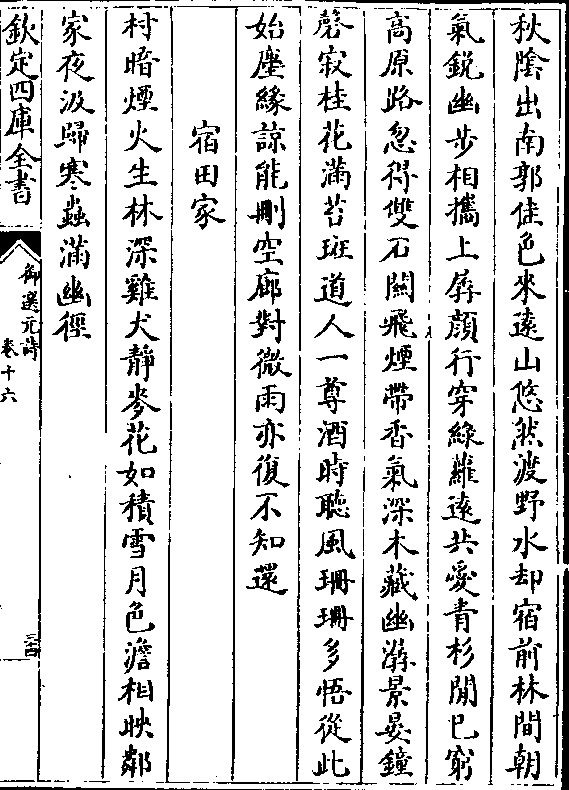 秋隂出南郭佳色來遠山悠然渡野水却宿前林間朝
氣銳幽步相攜上孱顔行穿綠蘿逺共愛青杉閒已窮
高原路忽得雙石闗飛煙帶香氣深木藏幽潺景晏鐘
磬寂桂花滿苔斑道人一尊酒時聽風珊珊多悟從此
始塵緣諒能刪空廊對微雨亦復不知還
宿田家
村暗煙火生林深雞犬靜麥花如積雪月色澹相映鄰
家夜汲歸寒蟲滿幽徑
欽定四庫全書
御選元詩
卷十六